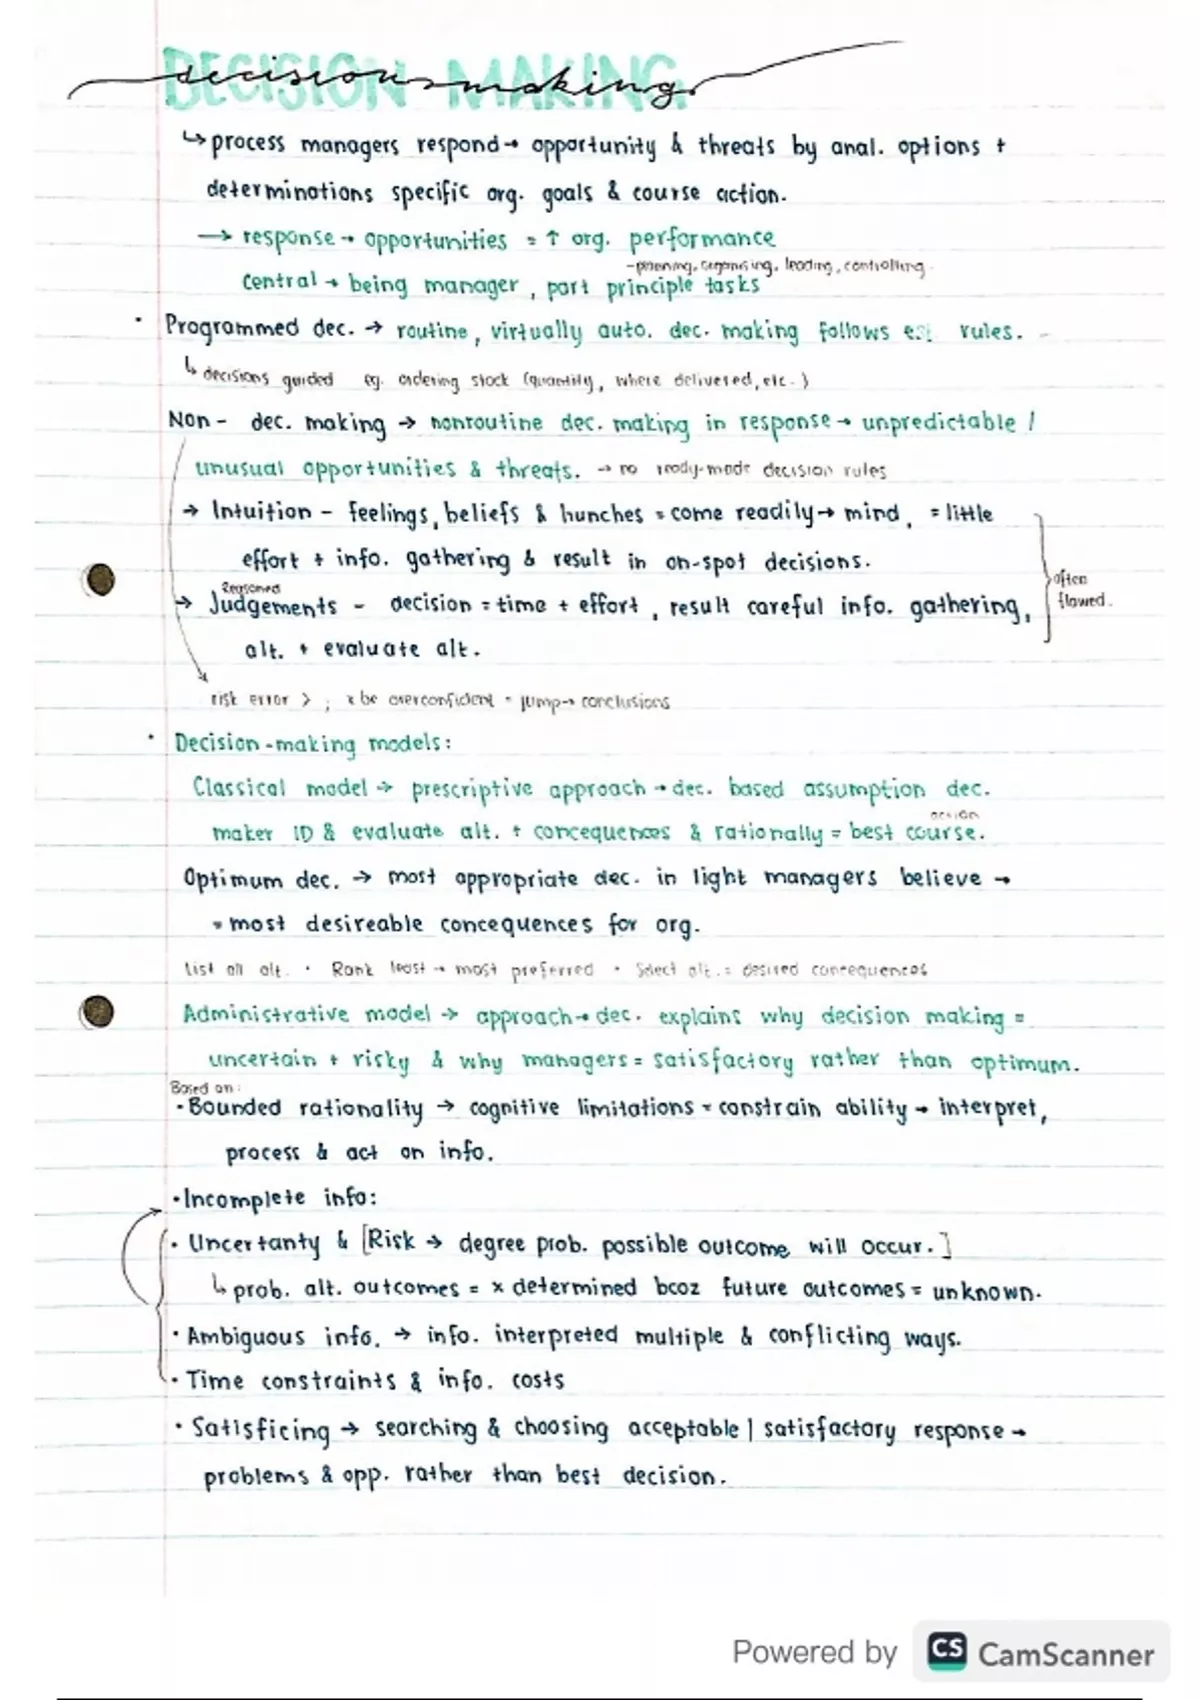 DECISION MAKING
decision making
↳ process managers respond → opportunity & threats by anal. options +
determinations specific org. goals & course action.
→ response → opportunities = ↑ org. performance
- planning, organising, leading, controlling.
Central → being manager, part principle tasks
• Programmed dec. → routine, virtually auto. dec. making follows est rules. -
↳ decisions guided eg. ordering stock (quantity, where delivered, etc.)
Non - dec. making → nonroutine dec. making in response → unpredictable /
unusual opportunities & threats. → no ready-made decision rules
→ Intuition - feelings, beliefs & hunches = come readily → mind, = little
effort + info. gathering & result in on-spot decisions.
often
flawed.
Reasoned
→ Judgements - decision = time + effort, result careful info. gathering,
alt. + evaluate alt.
risk error > ; x be overconfident = jump → conclusions
• Decision-making models:
Classical model → prescriptive approach → dec. based assumption dec.
action
maker ID & evaluate alt. + concequences & rationally = best course.
Optimum dec. → most appropriate dec. in light managers believe →
= most desireable concequences for org.
List all alt. • Rank least → most preferred • Select alt. = desired concequences
Administrative model → approach → dec. explains why decision making =
uncertain + risky & why managers = satisfactory rather than optimum.
Based on:
• Bounded rationality → cognitive limitations = constrain ability → interpret,
process & act on info.
• Incomplete info:
• Uncertanty & [Risk → degree prob. possible outcome will occur.]
↳ prob. alt. outcomes = x determined bcoz future outcomes = unknown.
• Ambiguous info. → info. interpreted multiple & conflicting ways.
• Time constraints & info. costs
• Satisficing → searching & choosing acceptable | satisfactory response →
problems & opp. rather than best decision.
Powered by CS CamScanner